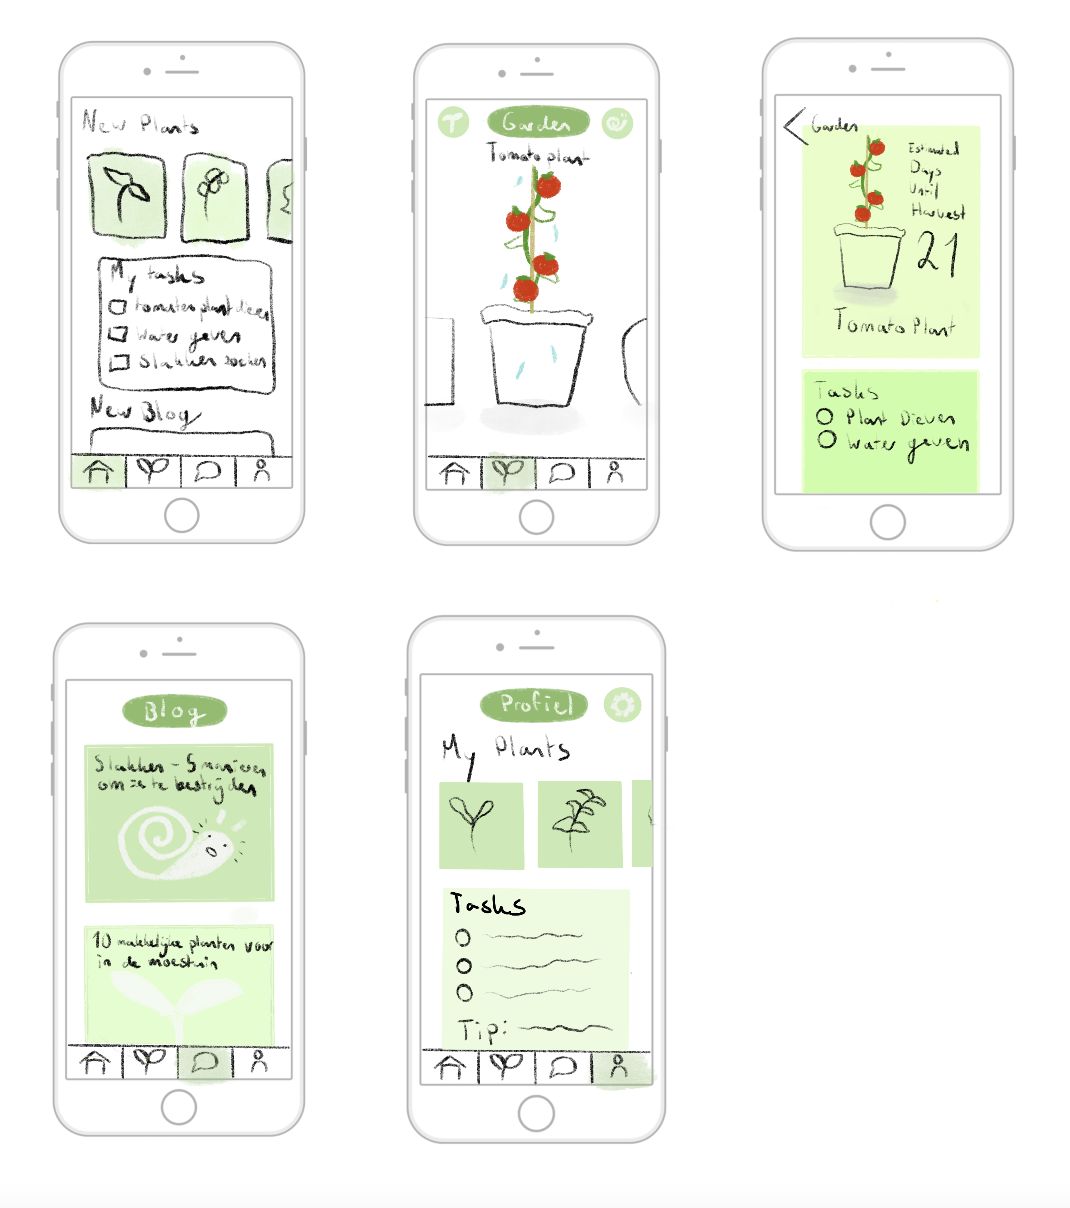 New Plants
My tasks
tomatenplant dieven
Water geven
Slakken zoeken
New Blog
Garden
Tomato plant
Garden
Estimated
Days
Until
Harvest
21
Tomato Plant
Tasks
Plant Dieven
Water geven
Blog
Slakken - 5 manieren
om ze te bestrijden
10 makkelijke planten voor
in de moestuin
Profiel
My Plants
Tasks
Tip: